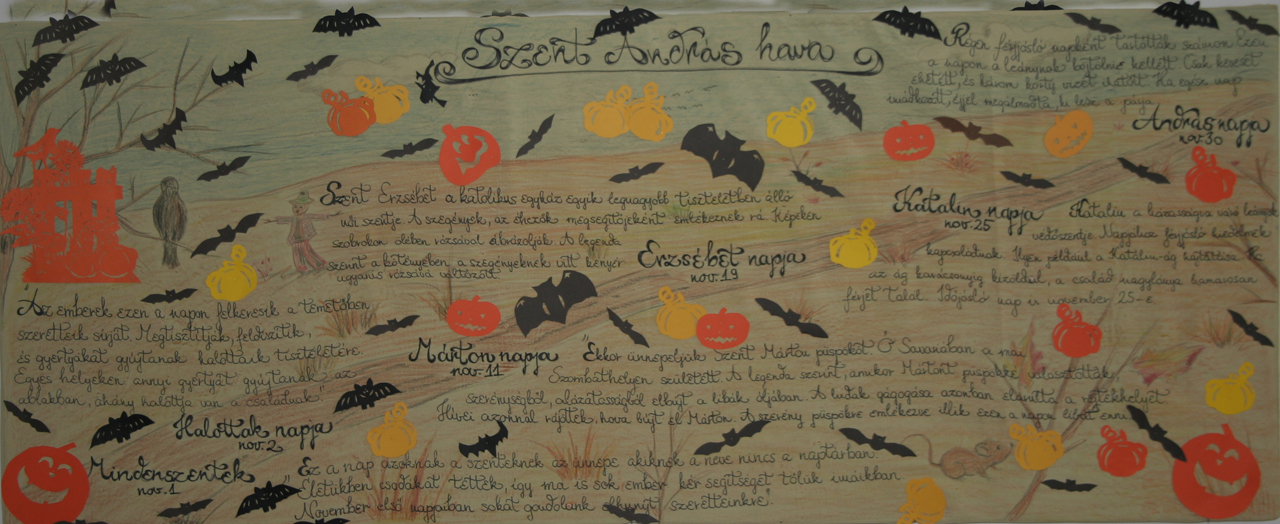 Szent András hava
Régen férjjósló napként tartották számon. Ezen
a napon a leánynak bőjtölnie kellett. Csak kenyeret
ehetett, és három korty vizet ihatott. Ha egész nap
imádkozott, éjjel megálmodta, ki lesz a párja.
András napja
nov. 30
Katalin napja
nov. 25
Katalin a házasságra váró leányok
védőszentje. Napjához férjjósló hiedelmek
kapcsolódnak. Ilyen például a Katalin-ág hajtatása. Ha
az ág karácsonyig kizöldül, a család nagylánya hamarosan
férjet talál. Időjósló nap is november 25-e.
Szent Erzsébet a katolikus egyház egyik legnagyobb tiszteletben álló
női szentje. A szegények, az éhezők megsegítőjeként emlékeznek rá. Képeken
szobrokon ölében rózsával ábrázolják. A legenda
szerint a kötényében, a szegényeknek vitt kenyér
ugyanis rózsává változott.
Erzsébet napja
nov. 19
Márton napja
nov. 11
Ekkor ünnepeljük Szent Márton püspököt. Ő Savariában a mai
Szombathelyen született. A legenda szerint, amikor Mártont püspökké választották,
szerénységből, alázatosságból elbújt a libák óljában. A ludak gágogása azonban elárulta a rejtekhelyét
Hívei azonnal rájöttek, hova bújt el Márton. A szerény püspökre emlékezve illik ezen a napon libát enni.
Az emberek ezen a napon felkeresik a temetőben
szeretteik sírját. Megtisztítják, feldíszítik,
és gyertyákat gyújtanak halottaik tiszteletére.
Egyes helyeken annyi gyertyát gyújtanak az
ablakban, ahány halottja van a családnak.
Halottak napja
nov. 2
Mindenszentek
nov. 1
Ez a nap azoknak a szenteknek az ünnepe akiknek a neve nincs a naptárban.
Életükben csodákat tettek, így ma is sok ember kér segítséget tőlük imáikban
November első napjaiban sokat gondolunk elhunyt szeretteinkre